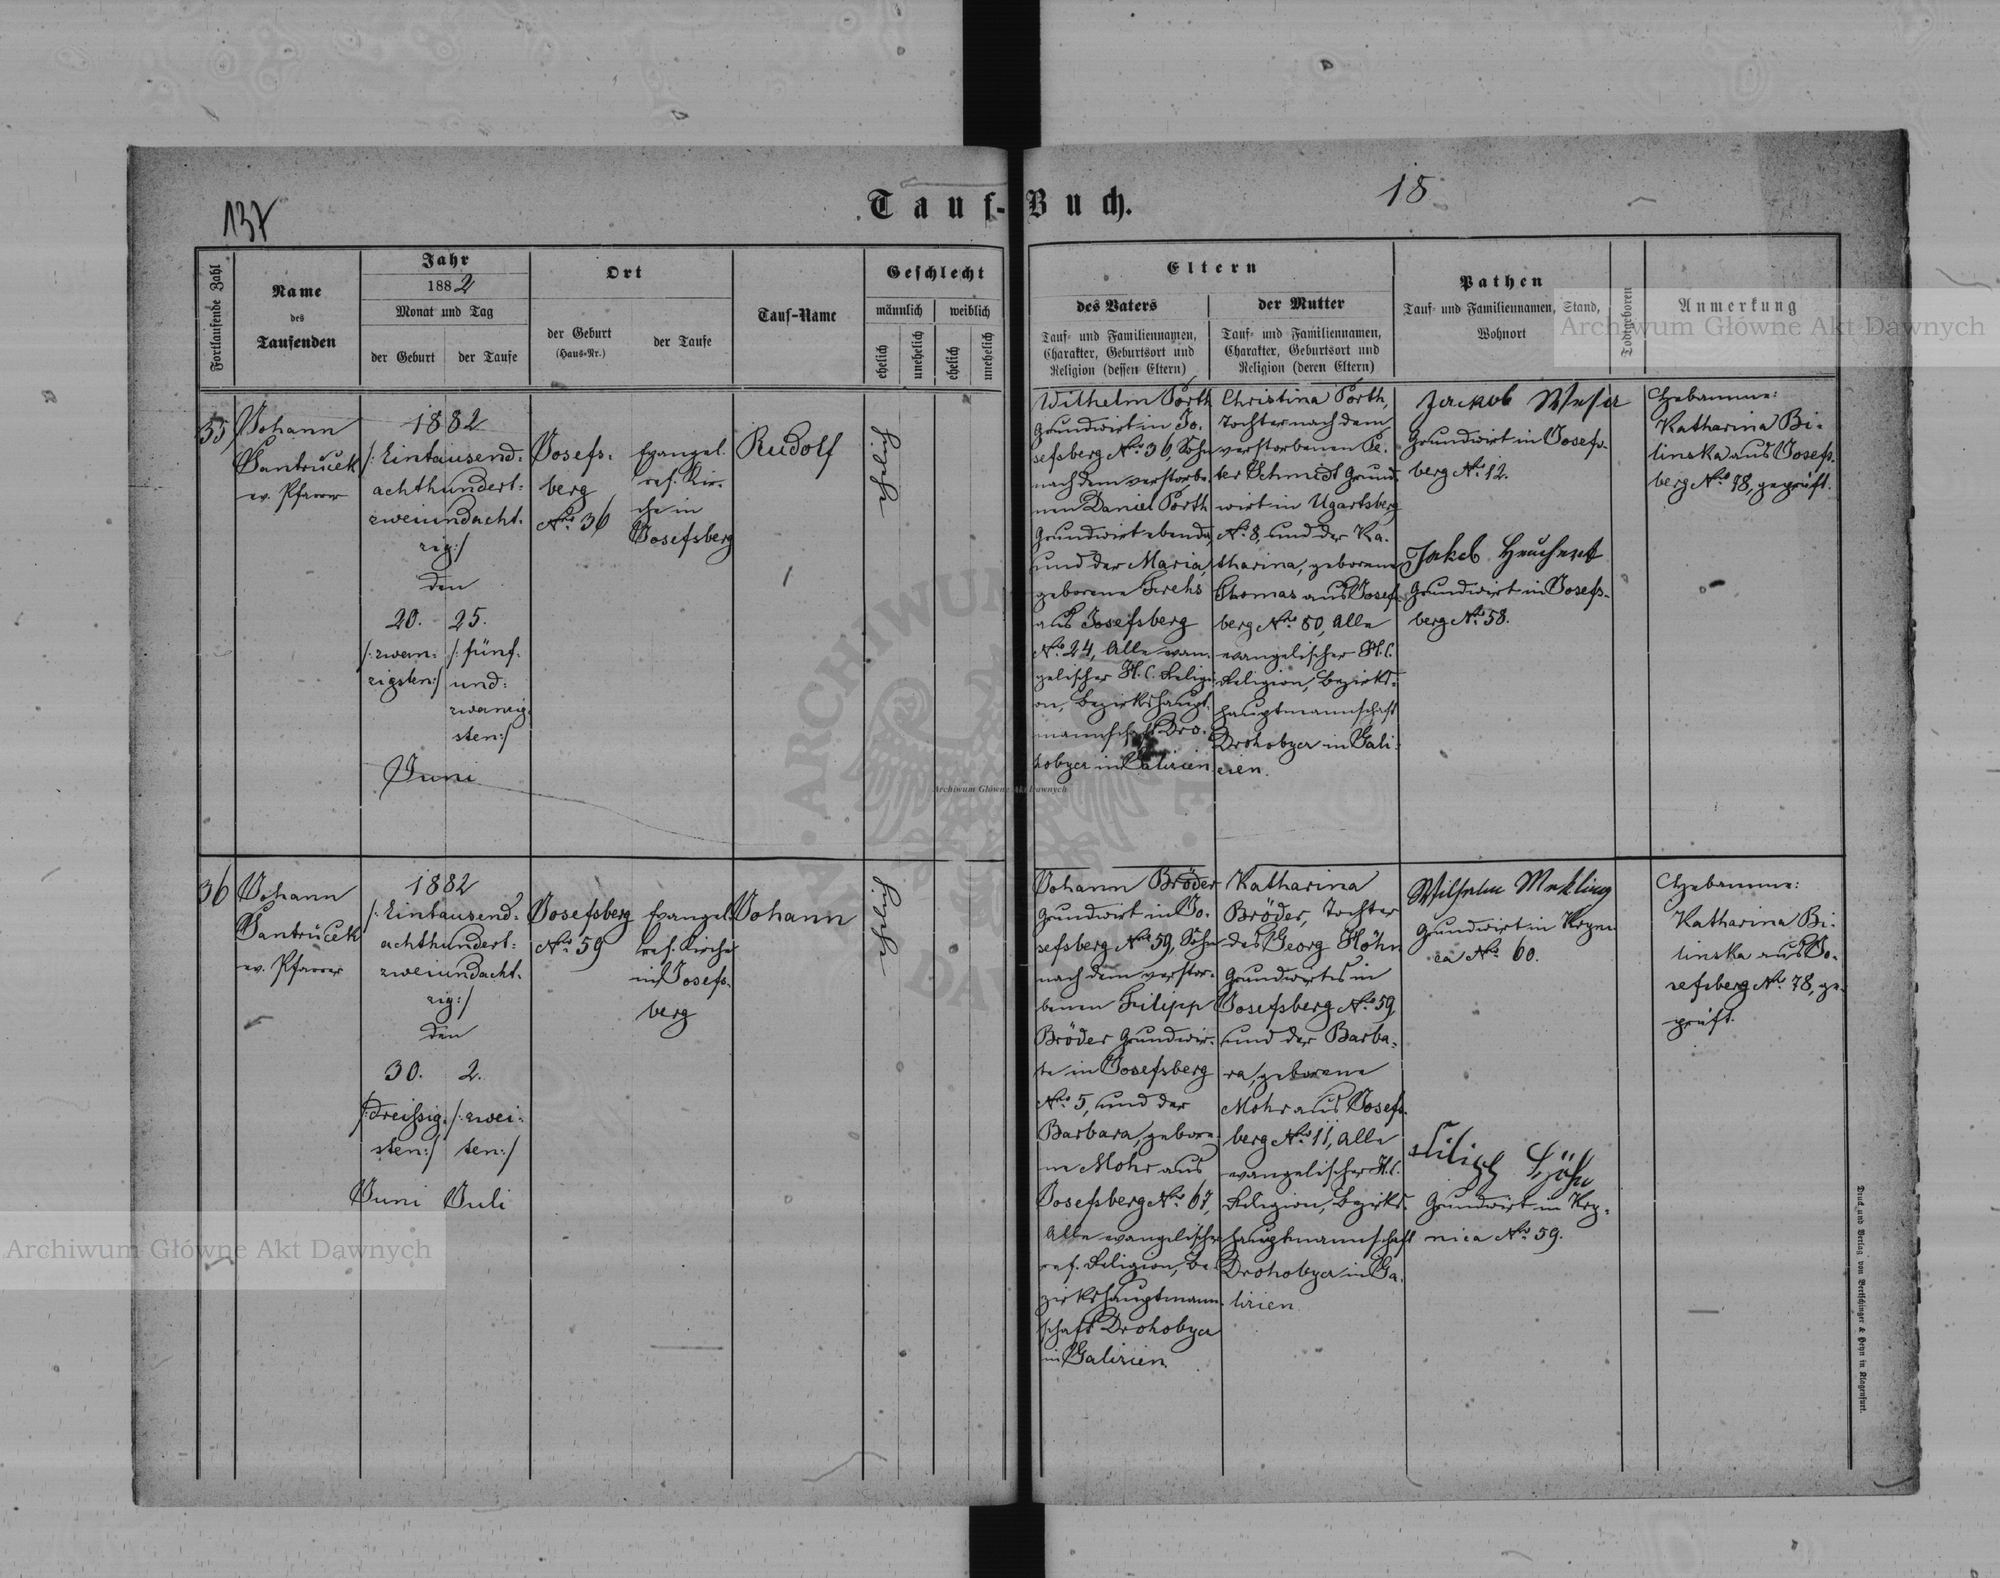 137
Tauf-Buch.
18
Fortlaufende Zahl
Name
des
Taufenden
Jahr
1882
Monat und Tag
der Geburt
der Taufe
Ort
der Geburt
(Haus-Nr.)
der Taufe
Tauf-Name
Geschlecht
männlich
weiblich
ehelich
unehelich
ehelich
unehelich
Eltern
des Vaters
Tauf- und Familiennamen,
Charakter, Geburtsort und
Religion (dessen Eltern)
der Mutter
Tauf- und Familiennamen,
Charakter, Geburtsort und
Religion (deren Eltern)
Pathen
Tauf- und Familiennamen, Stand,
Wohnort
Todtgeboren
Anmerkung
35
Johann
Jantrucek
ev. Pfarrer
1882
/: Eintausend-
achthundert-
zweiundacht-
zig:/
den
20.
/:zwan-
zigsten:/
25.
/:fünf-
und-
zwanzig-
sten:/
Juni
Josefs-
berg
No. 36
Evangel.
ref. Kir-
che in
Josefsberg
Rudolf
Wilhelm Porth
Grundwirt in Jo-
sefsberg No. 36, Sohn
nach dem verstorbe-
nen Daniel Porth
Grundwirt ebenda,
und der Maria,
geborene
aus Josefsberg
No. 24, Alle evan-
gelischer H. C. Religi-
on, Bezirkshaupt-
mannschaft Dro-
hobycz in Galizien.
Christina Porth,
Tochter nach dem
verstorbenen Pe-
ter Schmidt Grund-
wirt in Ugartsberg
No. 8, und der Ka-
tharina, geborene
Thomas aus Josefs-
berg No. 80, Alle
evangelischer H. C.
Religion, Bezirks-
hauptmannschaft
Drohobycz in Gali-
zien.
Jackob
Grundwirt in Josefs-
berg No. 12.
Jakob
Grundwirt in Josefs-
berg No. 58.
Hebamme:
Katharina Bi-
linska aus Josefs-
berg No. 78, geprüft.
36
Johann
Jantrucek
ev. Pfarrer
1882
/: Eintausend-
achthundert-
zweiundacht-
zig:/
den
30.
/:dreißig-
sten:/
Juni
2.
/:zwei-
ten:/
Juli
Josefsberg
No. 59
Evangel.
ref. Kirche
in Josefs-
berg
Johann
Johann Bröder
Grundwirt in Jo-
sefsberg No. 59, Sohn
nach dem verstor-
benen Filipp
Bröder Grundwir-
te in Josefsberg
No. 5, und der
Barbara, gebore-
ne Mohr aus
Josefsberg No. 67,
Alle evangelischer
ref. Religion, Be-
zirkshauptmann-
schaft Drohobycz
in Galizien.
Katharina
Bröder, Tochter
des Georg Höhn
Grundwirtes in
Josefsberg No. 59,
und der Barba-
ra, geborene
Mohr aus Josefs-
berg No. 11, Alle
evangelischer H. C.
Religion, Bezirks-
hauptmannschaft
Drohobycz in Ga-
lizien.
Wilhelm Mekling
Grundwirt in Kryni-
ca No. 60.
Filipp Höhn
Grundwirt in Kry-
nica No. 59.
Hebamme:
Katharina Bi-
linska aus Jo-
sefsberg No. 78, ge-
prüft.
Druck und Verlag von Bertschinger & Heyn in Klagenfurt.
Archiwum Główne Akt Dawnych
Archiwum Główne Akt Dawnych
Archiwum Główne Akt Dawnych